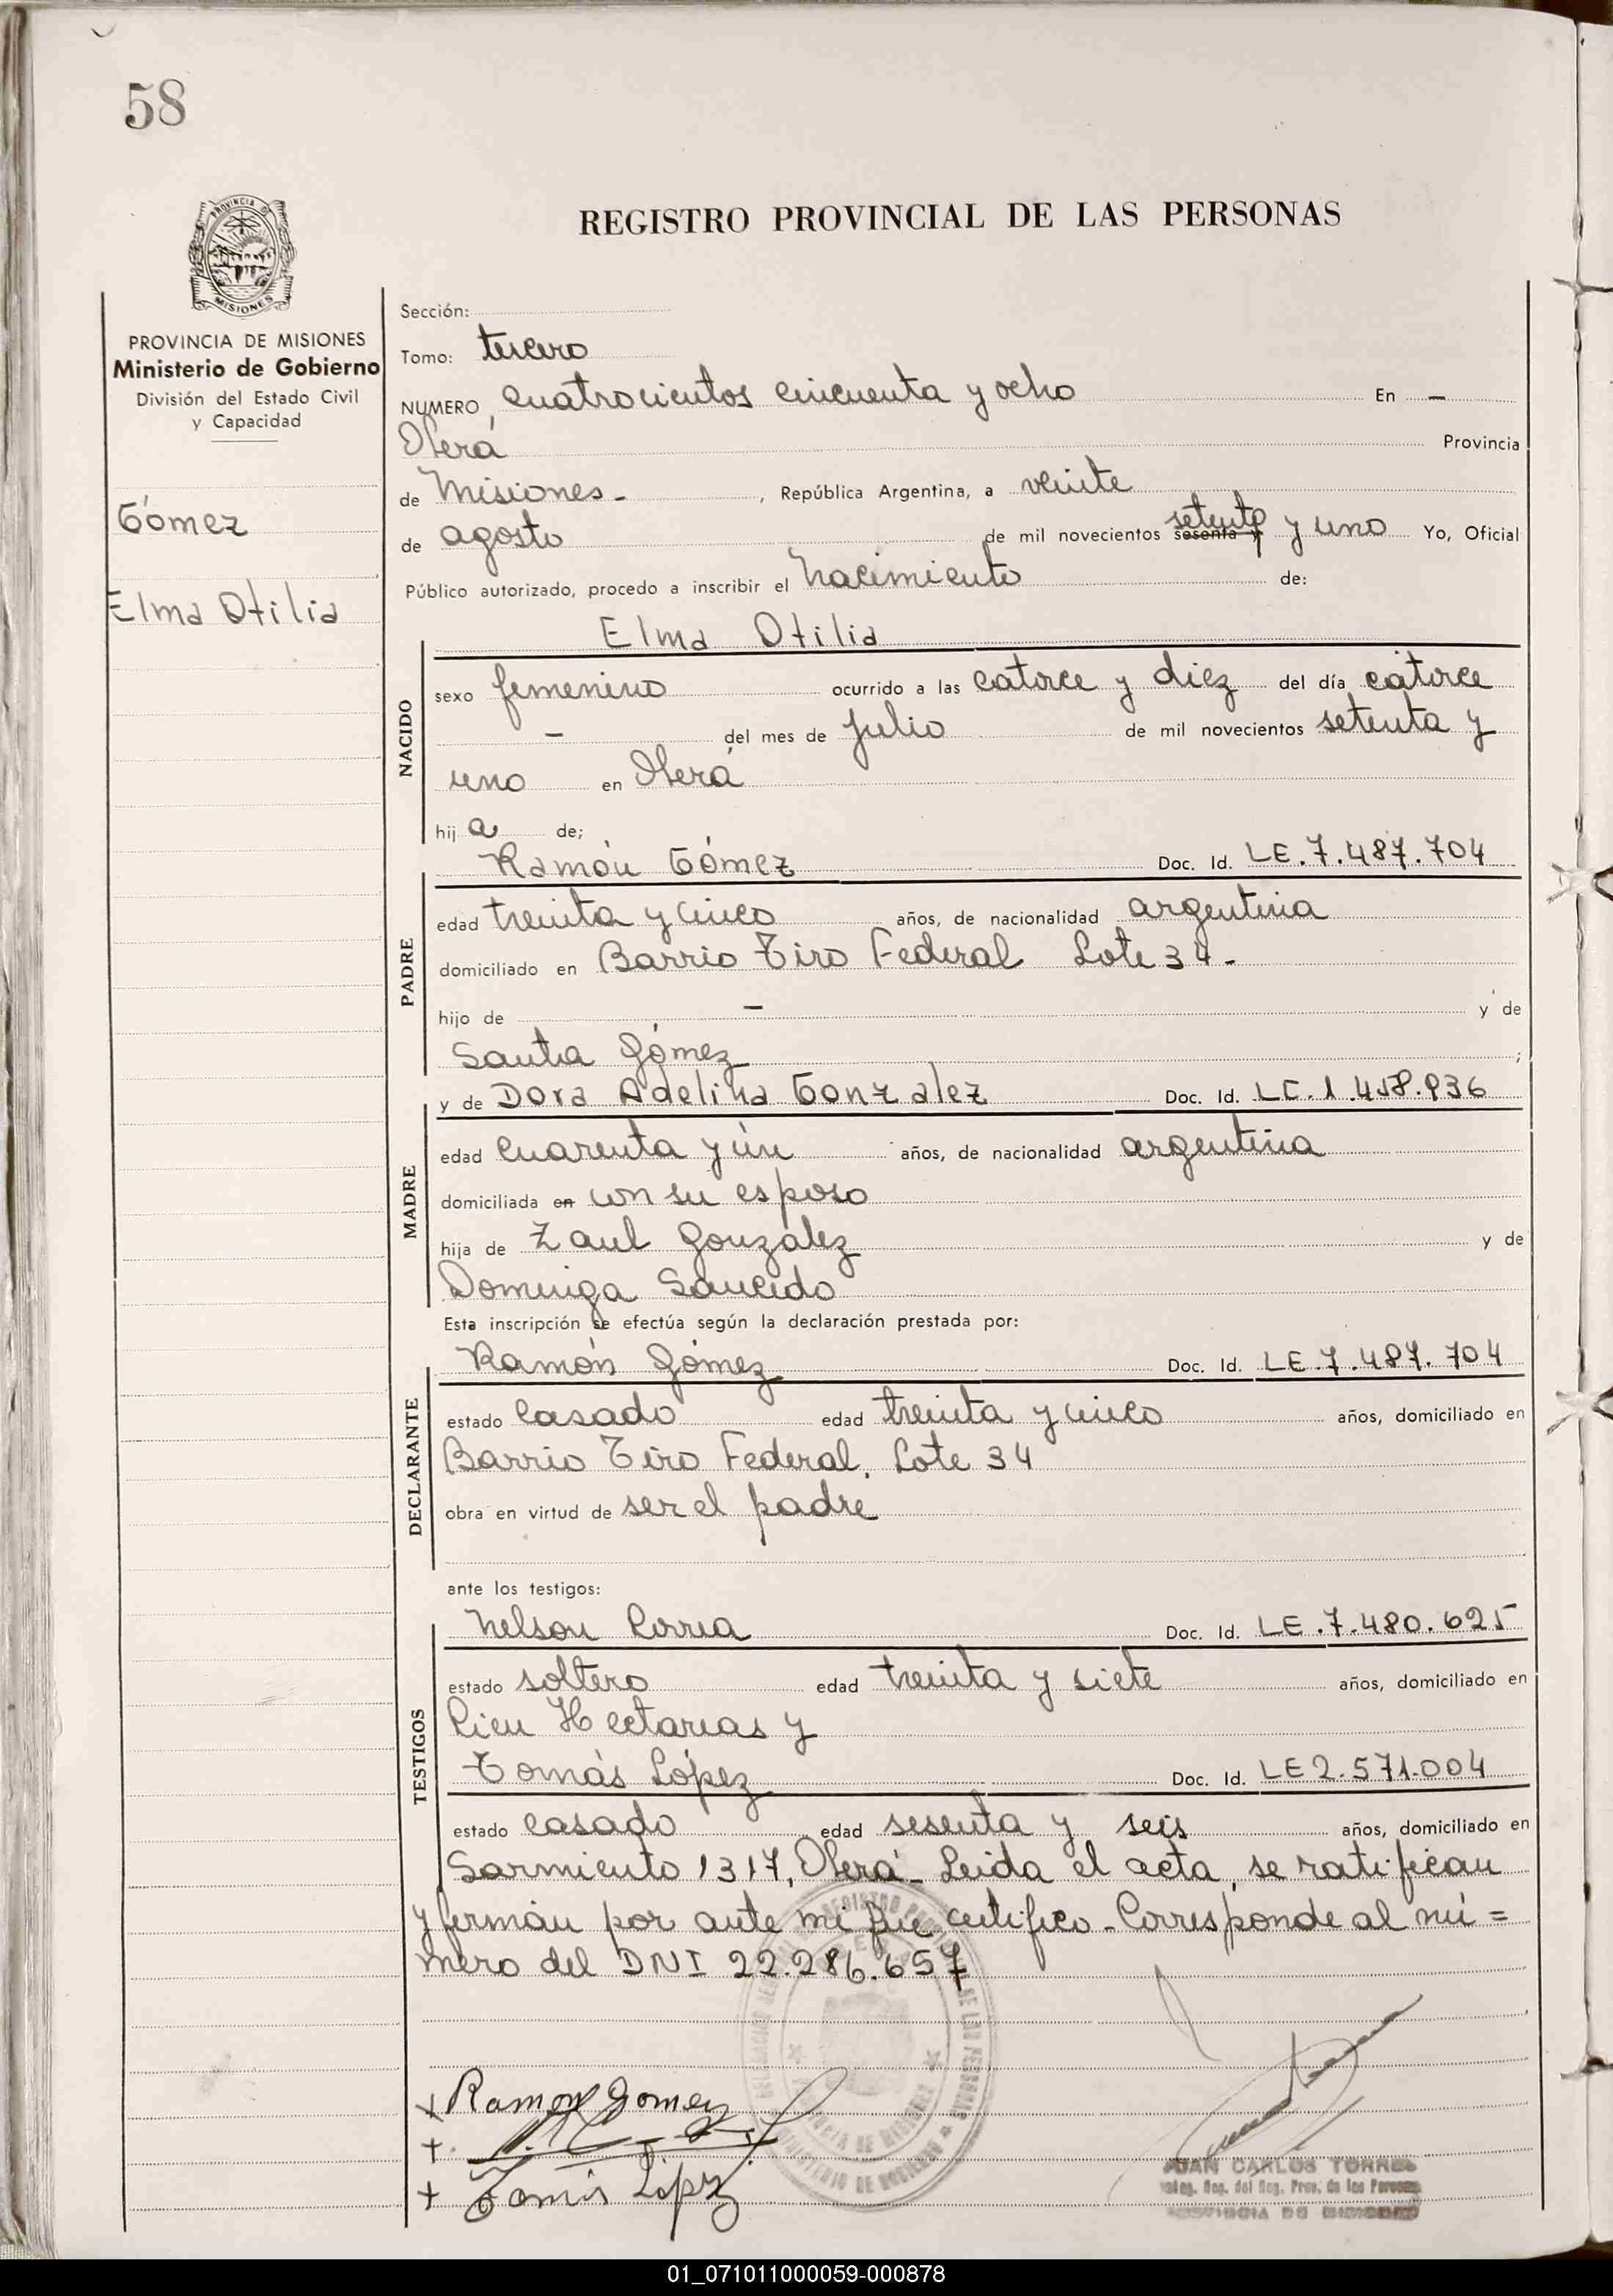 58
REGISTRO PROVINCIAL DE LAS PERSONAS
PROVINCIA DE MISIONES
Ministerio de Gobierno
División del Estado Civil
y Capacidad
Gómez
Elma Otilia
Sección:
Tomo: tercero
NUMERO cuatrocientos cincuenta y ocho En –
Oberá Provincia
de Misiones - , República Argentina, a veinte
de agosto de mil novecientos setenta y uno Yo, Oficial
Público autorizado, procedo a inscribir el nacimiento de:
Elma Otilia
NACIDO
sexo femenino ocurrido a las catorce y diez del día catorce
– del mes de julio de mil novecientos setenta y
uno en Oberá
hij a de;
Ramón Gómez Doc. Id. LE.7.487.704
PADRE
edad treinta y cinco años, de nacionalidad argentina
domiciliado en Barrio Tiro Federal Lote 34-
hijo de – y de
Santa Gómez ;
y de Dora Adelina Gonzalez Doc. Id. LC.1.458.936
MADRE
edad cuarenta y un años, de nacionalidad argentina
domiciliada en con su esposo
hija de Zaul González y de
Dominga Saucedo
Esta inscripción se efectúa según la declaración prestada por:
Ramón Gómez Doc. Id. LE.7.487.704
DECLARANTE
estado casado edad treinta y cinco años, domiciliado en
Barrio Tiro Federal, Lote 34
obra en virtud de ser el padre
ante los testigos:
Nelson Correa Doc. Id. LE.7.480.625
TESTIGOS
estado soltero edad treinta y siete años, domiciliado en
Cien Hectareas y
Tomás López Doc. Id. LE2.571.004
estado casado edad sesenta y seis años, domiciliado en
Sarmiento 1317, Oberá - Leida el acta, se ratifican
y firman por ante mi que certifico - Corresponde al nú=
mero del DNI 22.286.657
+ Ramon Gomez
+
+ Tomás López
JUAN CARLOS TORRES
PROVINCIA DE MISIONES
01_071011000059-000878